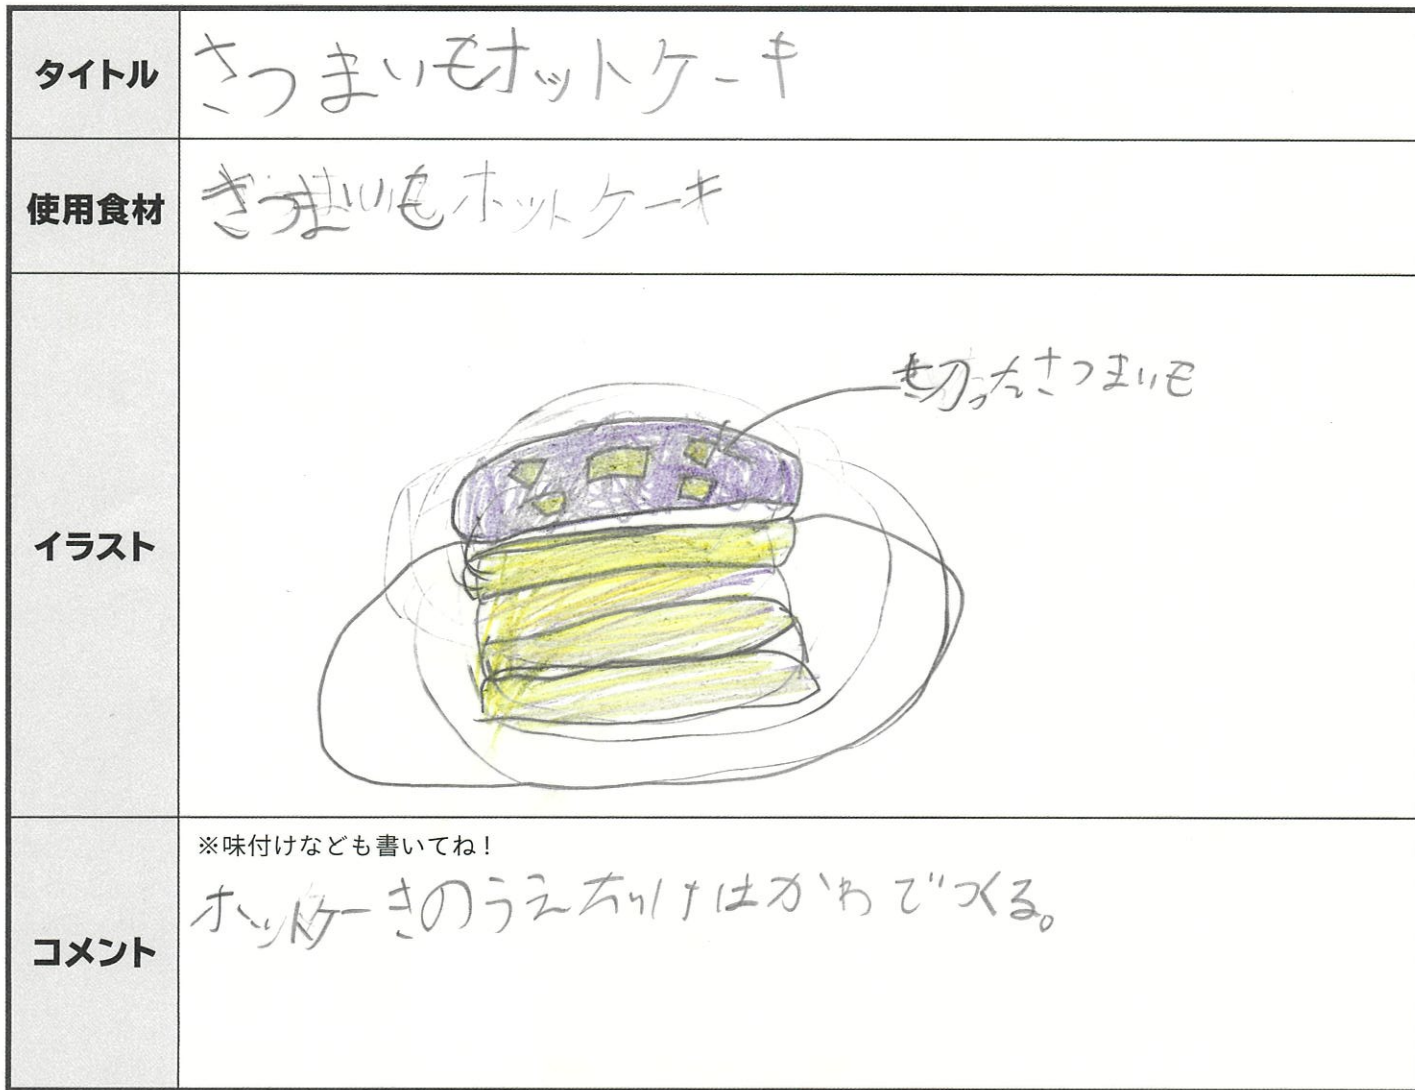 タイトル
さつまいもホットケーキ
使用食材
さつまいもホットケーキ
イラスト
切ったさつまいも
コメント
※味付けなども書いてね！
ホットケーきのうえだけはかわでつくる。